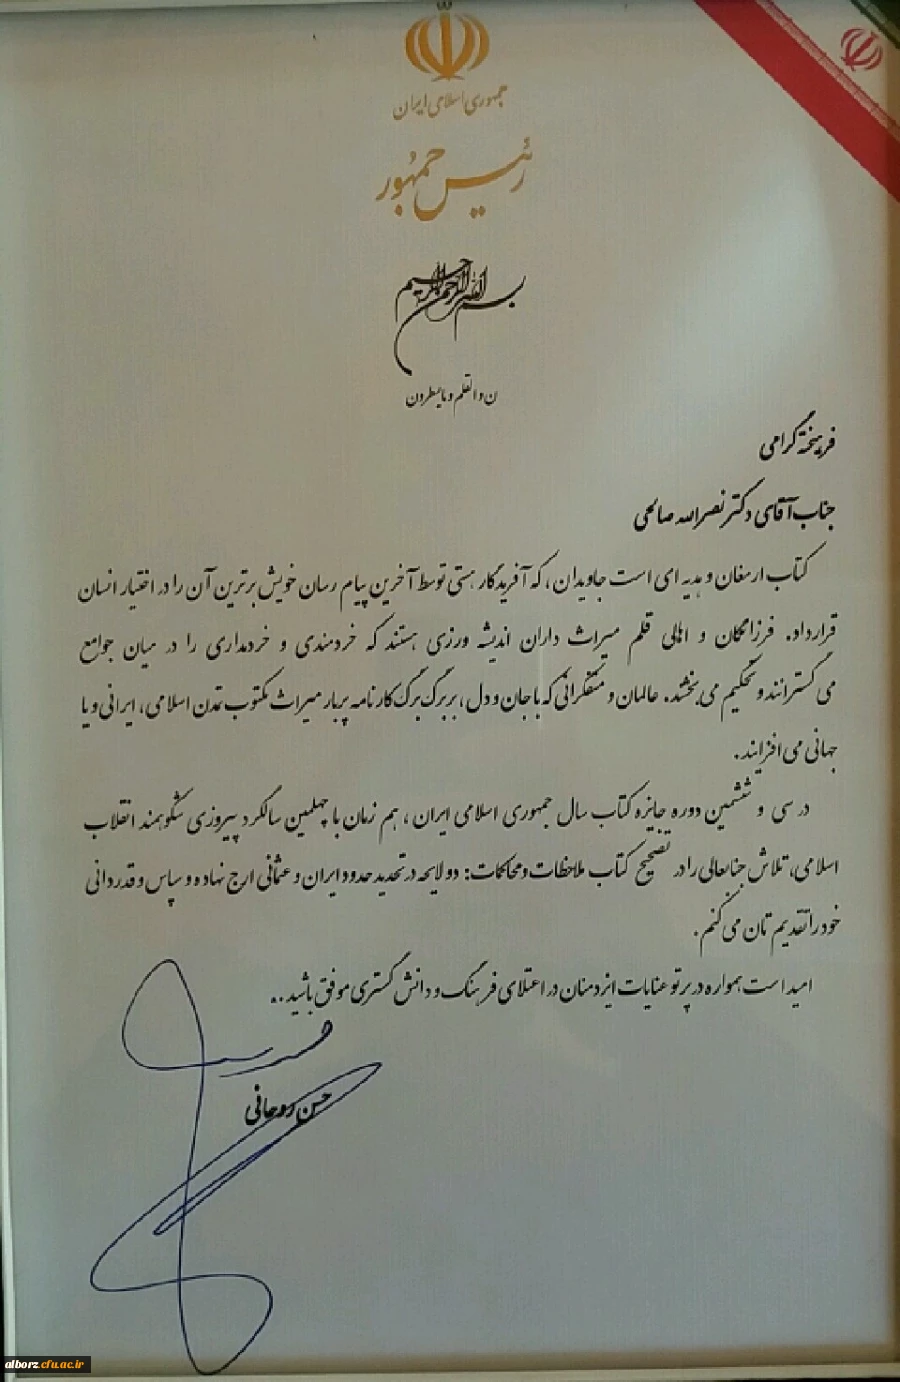 جمهوری اسلامی ایران
رئیس جمهور
بسم الله الرحمن الرحیم
ن والقلم و ما یسطرون
فرهیخته گرامی
جناب آقای دکتر نصرالله صالحی
کتاب ارمغان و هدیه ای است جاویدان، که آفریدگار هستی توسط آخرین پیام رسان خویش برترین آن را در اختیار انسان
قرار داد. فرزانگان و اهالی قلم میراث داران اندیشه ورزی هستند که خردمندی و خردمداری را در میان جوامع
می گسترانند و تحکیم می بخشند. عالمان و متفکرانی که با جان و دل، بر برگ برگ کارنامه پربار میراث مکتوب تمدن اسلامی، ایرانی و یا
جهانی می افزایند.
در سی و ششمین دوره جایزه کتاب سال جمهوری اسلامی ایران، هم زمان با چهلمین سالگرد پیروزی شکوهمند انقلاب
اسلامی، تلاش جنابعالی را در تصحیح کتاب ملاحظات و محاکمات: دو لایحه در تحدید حدود ایران و عثمانی ارج نهاده و سپاس و قدردانی
خود را تقدیم تان می کنم.
امید است همواره در پرتو عنایات ایزدمنان در اعتلای فرهنگ و دانش گستری موفق باشید..
حسن روحانی
alborz.cfu.ac.ir